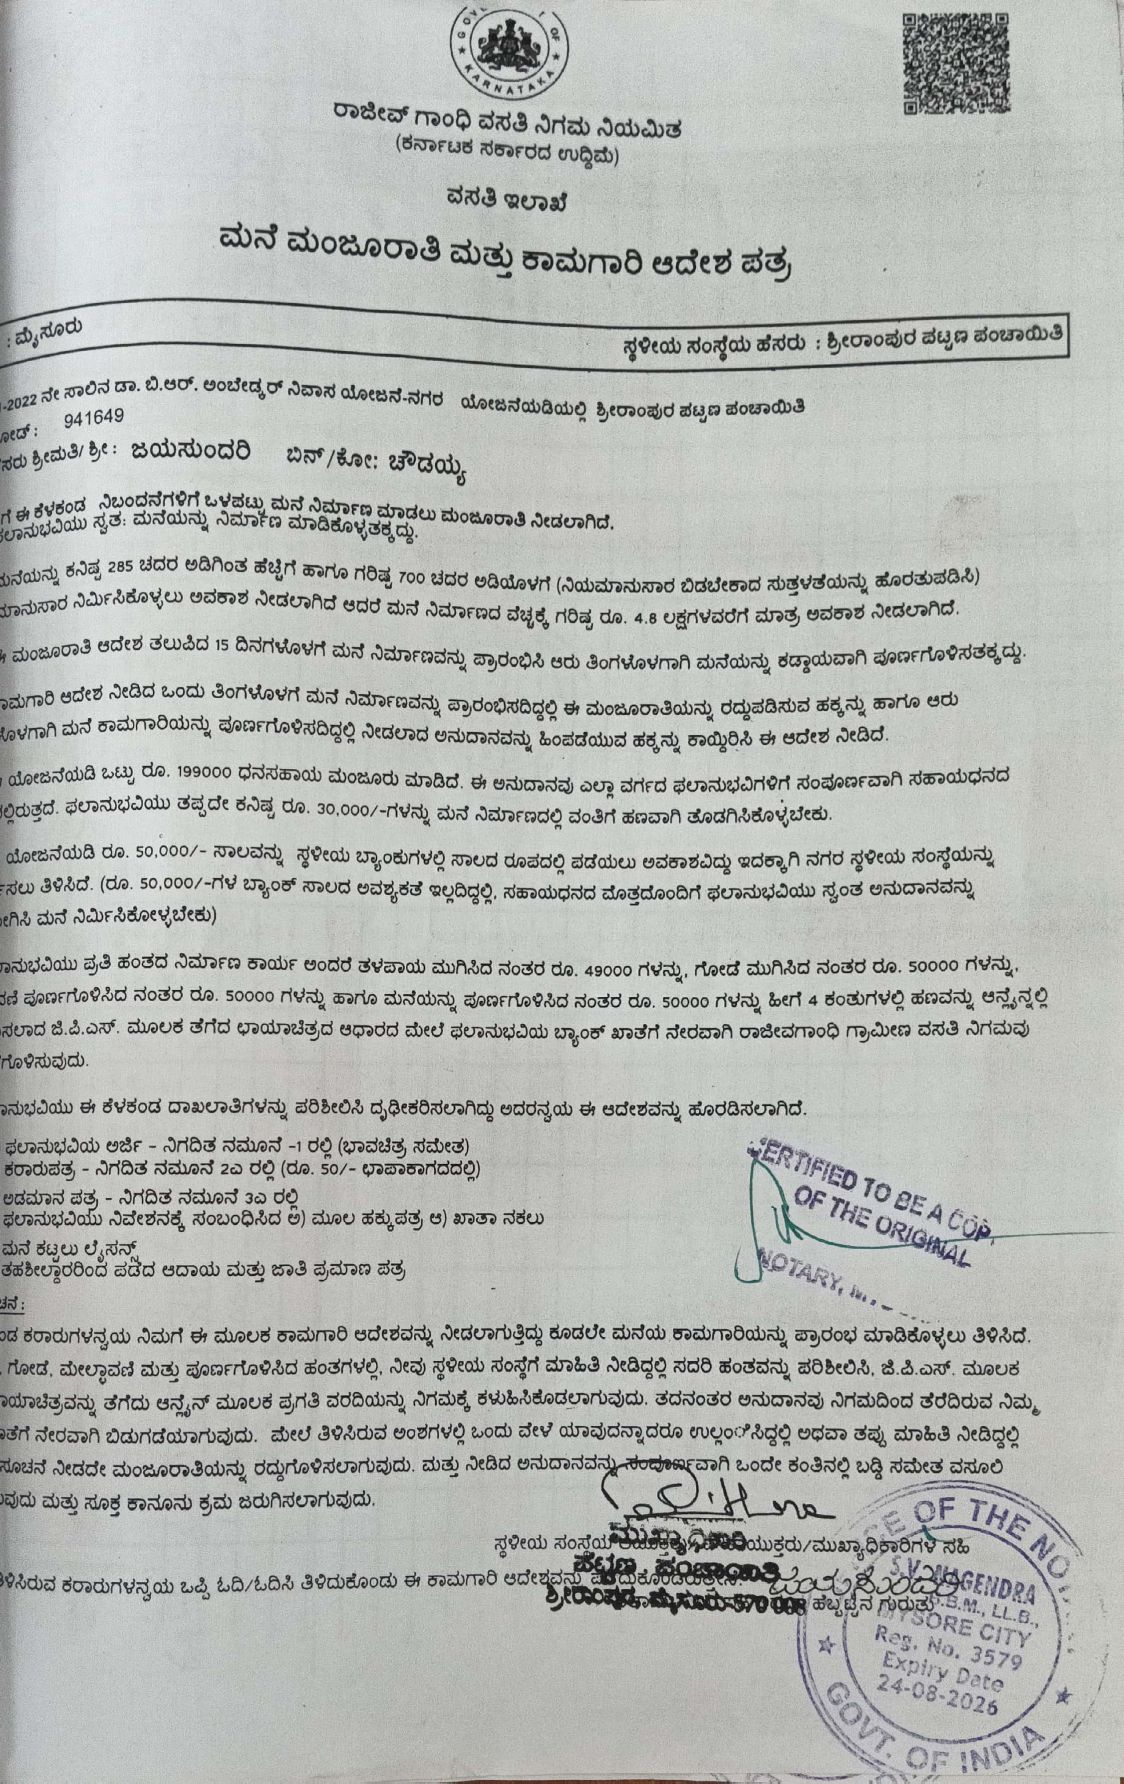 GOV OF KARNATAKA
ರಾಜೀವ್ ಗಾಂಧಿ ವಸತಿ ನಿಗಮ ನಿಯಮಿತ
(ಕರ್ನಾಟಕ ಸರ್ಕಾರದ ಉದ್ದಿಮೆ)
ವಸತಿ ಇಲಾಖೆ
ಮನೆ ಮಂಜೂರಾತಿ ಮತ್ತು ಕಾಮಗಾರಿ ಆದೇಶ ಪತ್ರ
: ಮೈಸೂರು ಸ್ಥಳೀಯ ಸಂಸ್ಥೆಯ ಹೆಸರು : ಶ್ರೀರಾಂಪುರ ಪಟ್ಟಣ ಪಂಚಾಯಿತಿ
-2022 ನೇ ಸಾಲಿನ ಡಾ. ಬಿ.ಆರ್. ಅಂಬೇಡ್ಕರ್ ನಿವಾಸ ಯೋಜನೆ-ನಗರ ಯೋಜನೆಯಡಿಯಲ್ಲಿ ಶ್ರೀರಾಂಪುರ ಪಟ್ಟಣ ಪಂಚಾಯಿತಿ
ೋಡ್ : 941649
ಸರು ಶ್ರೀಮತಿ/ ಶ್ರೀ : ಜಯಸುಂದರಿ ಬಿನ್/ಕೋ: ಚೌಡಯ್ಯ
ಗೆ ಈ ಕೆಳಕಂಡ ನಿಬಂದನೆಗಳಿಗೆ ಒಳಪಟ್ಟು ಮನೆ ನಿರ್ಮಾಣ ಮಾಡಲು ಮಂಜೂರಾತಿ ನೀಡಲಾಗಿದೆ.
ಲಾನುಭವಿಯು ಸ್ವತ: ಮನೆಯನ್ನು ನಿರ್ಮಾಣ ಮಾಡಿಕೊಳ್ಳತಕ್ಕದ್ದು.
ಮನೆಯನ್ನು ಕನಿಷ್ಠ 285 ಚದರ ಅಡಿಗಿಂತ ಹೆಚ್ಚಿಗೆ ಹಾಗೂ ಗರಿಷ್ಠ 700 ಚದರ ಅಡಿಯೊಳಗೆ (ನಿಯಮಾನುಸಾರ ಬಿಡಬೇಕಾದ ಸುತ್ತಳತೆಯನ್ನು ಹೊರತುಪಡಿಸಿ)
ಮಾನುಸಾರ ನಿರ್ಮಿಸಿಕೊಳ್ಳಲು ಅವಕಾಶ ನೀಡಲಾಗಿದೆ ಆದರೆ ಮನೆ ನಿರ್ಮಾಣದ ವೆಚ್ಚಕ್ಕೆ ಗರಿಷ್ಠ ರೂ. 4.8 ಲಕ್ಷಗಳವರೆಗೆ ಮಾತ್ರ ಅವಕಾಶ ನೀಡಲಾಗಿದೆ.
ಈ ಮಂಜೂರಾತಿ ಆದೇಶ ತಲುಪಿದ 15 ದಿನಗಳೊಳಗೆ ಮನೆ ನಿರ್ಮಾಣವನ್ನು ಪ್ರಾರಂಭಿಸಿ ಆರು ತಿಂಗಳೊಳಗಾಗಿ ಮನೆಯನ್ನು ಕಡ್ಡಾಯವಾಗಿ ಪೂರ್ಣಗೊಳಿಸತಕ್ಕದ್ದು.
ಾಮಗಾರಿ ಆದೇಶ ನೀಡಿದ ಒಂದು ತಿಂಗಳೊಳಗೆ ಮನೆ ನಿರ್ಮಾಣವನ್ನು ಪ್ರಾರಂಭಿಸದಿದ್ದಲ್ಲಿ ಈ ಮಂಜೂರಾತಿಯನ್ನು ರದ್ದುಪಡಿಸುವ ಹಕ್ಕನ್ನು ಹಾಗೂ ಆರು
ೊಳಗಾಗಿ ಮನೆ ಕಾಮಗಾರಿಯನ್ನು ಪೂರ್ಣಗೊಳಿಸದಿದ್ದಲ್ಲಿ ನೀಡಲಾದ ಅನುದಾನವನ್ನು ಹಿಂಪಡೆಯುವ ಹಕ್ಕನ್ನು ಕಾಯ್ದಿರಿಸಿ ಈ ಆದೇಶ ನೀಡಿದೆ.
ಯೋಜನೆಯಡಿ ಒಟ್ಟು ರೂ. 199000 ಧನಸಹಾಯ ಮಂಜೂರು ಮಾಡಿದೆ. ಈ ಅನುದಾನವು ಎಲ್ಲಾ ವರ್ಗದ ಫಲಾನುಭವಿಗಳಿಗೆ ಸಂಪೂರ್ಣವಾಗಿ ಸಹಾಯಧನದ
ಲ್ಲಿರುತ್ತದೆ. ಫಲಾನುಭವಿಯು ತಪ್ಪದೇ ಕನಿಷ್ಠ ರೂ. 30,000/-ಗಳನ್ನು ಮನೆ ನಿರ್ಮಾಣದಲ್ಲಿ ವಂತಿಗೆ ಹಣವಾಗಿ ತೊಡಗಿಸಿಕೊಳ್ಳಬೇಕು.
ಯೋಜನೆಯಡಿ ರೂ. 50,000/- ಸಾಲವನ್ನು ಸ್ಥಳೀಯ ಬ್ಯಾಂಕುಗಳಲ್ಲಿ ಸಾಲದ ರೂಪದಲ್ಲಿ ಪಡೆಯಲು ಅವಕಾಶವಿದ್ದು ಇದಕ್ಕಾಗಿ ನಗರ ಸ್ಥಳೀಯ ಸಂಸ್ಥೆಯನ್ನು
ಸಲು ತಿಳಿಸಿದೆ. (ರೂ. 50,000/-ಗಳ ಬ್ಯಾಂಕ್ ಸಾಲದ ಅವಶ್ಯಕತೆ ಇಲ್ಲದಿದ್ದಲ್ಲಿ, ಸಹಾಯಧನದ ಮೊತ್ತದೊಂದಿಗೆ ಫಲಾನುಭವಿಯು ಸ್ವಂತ ಅನುದಾನವನ್ನು
ಗಿಸಿ ಮನೆ ನಿರ್ಮಿಸಿಕೋಳ್ಳಬೇಕು)
ಾನುಭವಿಯು ಪ್ರತಿ ಹಂತದ ನಿರ್ಮಾಣ ಕಾರ್ಯ ಅಂದರೆ ತಳಪಾಯ ಮುಗಿಸಿದ ನಂತರ ರೂ. 49000 ಗಳನ್ನು, ಗೋಡೆ ಮುಗಿಸಿದ ನಂತರ ರೂ. 50000 ಗಳನ್ನು,
ಣಿ ಪೂರ್ಣಗೊಳಿಸಿದ ನಂತರ ರೂ. 50000 ಗಳನ್ನು ಹಾಗೂ ಮನೆಯನ್ನು ಪೂರ್ಣಗೊಳಿಸಿದ ನಂತರ ರೂ. 50000 ಗಳನ್ನು ಹೀಗೆ 4 ಕಂತುಗಳಲ್ಲಿ ಹಣವನ್ನು ಆನ್ಲೈನ್ನಲ್ಲಿ
ಸಲಾದ ಜಿ.ಪಿ.ಎಸ್. ಮೂಲಕ ತೆಗೆದ ಛಾಯಾಚಿತ್ರದ ಆಧಾರದ ಮೇಲೆ ಫಲಾನುಭವಿಯ ಬ್ಯಾಂಕ್ ಖಾತೆಗೆ ನೇರವಾಗಿ ರಾಜೀವಗಾಂಧಿ ಗ್ರಾಮೀಣ ವಸತಿ ನಿಗಮವು
ಗೊಳಿಸುವುದು.
ಾನುಭವಿಯು ಈ ಕೆಳಕಂಡ ದಾಖಲಾತಿಗಳನ್ನು ಪರಿಶೀಲಿಸಿ ದೃಢೀಕರಿಸಲಾಗಿದ್ದು ಅದರನ್ವಯ ಈ ಆದೇಶವನ್ನು ಹೊರಡಿಸಲಾಗಿದೆ.
ಫಲಾನುಭವಿಯ ಅರ್ಜಿ - ನಿಗದಿತ ನಮೂನೆ -1 ರಲ್ಲಿ (ಭಾವಚಿತ್ರ ಸಮೇತ)
ಕರಾರುಪತ್ರ - ನಿಗದಿತ ನಮೂನೆ 2ಎ ರಲ್ಲಿ (ರೂ. 50/- ಛಾಪಾಕಾಗದದಲ್ಲಿ)
ಅಡಮಾನ ಪತ್ರ - ನಿಗದಿತ ನಮೂನೆ 3ಎ ರಲ್ಲಿ
ಫಲಾನುಭವಿಯು ನಿವೇಶನಕ್ಕೆ ಸಂಬಂಧಿಸಿದ ಅ) ಮೂಲ ಹಕ್ಕುಪತ್ರ ಆ) ಖಾತಾ ನಕಲು
ಮನೆ ಕಟ್ಟಲು ಲೈಸನ್ಸ್
ತಹಶೀಲ್ದಾರರಿಂದ ಪಡೆದ ಆದಾಯ ಮತ್ತು ಜಾತಿ ಪ್ರಮಾಣ ಪತ್ರ
CERTIFIED TO BE A COP
OF THE ORIGINAL
NOTARY, M
ಚನೆ :
ಂಡ ಕರಾರುಗಳನ್ವಯ ನಿಮಗೆ ಈ ಮೂಲಕ ಕಾಮಗಾರಿ ಆದೇಶವನ್ನು ನೀಡಲಾಗುತ್ತಿದ್ದು ಕೂಡಲೇ ಮನೆಯ ಕಾಮಗಾರಿಯನ್ನು ಪ್ರಾರಂಭ ಮಾಡಿಕೊಳ್ಳಲು ತಿಳಿಸಿದೆ.
ಗೋಡೆ, ಮೇಲ್ಛಾವಣಿ ಮತ್ತು ಪೂರ್ಣಗೊಳಿಸಿದ ಹಂತಗಳಲ್ಲಿ, ನೀವು ಸ್ಥಳೀಯ ಸಂಸ್ಥೆಗೆ ಮಾಹಿತಿ ನೀಡಿದ್ದಲ್ಲಿ ಸದರಿ ಹಂತವನ್ನು ಪರಿಶೀಲಿಸಿ, ಜಿ.ಪಿ.ಎಸ್. ಮೂಲಕ
ಾಯಾಚಿತ್ರವನ್ನು ತೆಗೆದು ಆನ್ಲೈನ್ ಮೂಲಕ ಪ್ರಗತಿ ವರದಿಯನ್ನು ನಿಗಮಕ್ಕೆ ಕಳುಹಿಸಿಕೊಡಲಾಗುವುದು. ತದನಂತರ ಅನುದಾನವು ನಿಗಮದಿಂದ ತೆರೆದಿರುವ ನಿಮ್ಮ
ಾತೆಗೆ ನೇರವಾಗಿ ಬಿಡುಗಡೆಯಾಗುವುದು. ಮೇಲೆ ತಿಳಿಸಿರುವ ಅಂಶಗಳಲ್ಲಿ ಒಂದು ವೇಳೆ ಯಾವುದನ್ನಾದರೂ ಉಲ್ಲಂೆಸಿದ್ದಲ್ಲಿ ಅಥವಾ ತಪ್ಪು ಮಾಹಿತಿ ನೀಡಿದ್ದಲ್ಲಿ
ಸೂಚನೆ ನೀಡದೇ ಮಂಜೂರಾತಿಯನ್ನು ರದ್ದುಗೊಳಿಸಲಾಗುವುದು. ಮತ್ತು ನೀಡಿದ ಅನುದಾನವನ್ನು ಸಂಪೂರ್ಣವಾಗಿ ಒಂದೇ ಕಂತಿನಲ್ಲಿ ಬಡ್ಡಿ ಸಮೇತ ವಸೂಲಿ
ುವುದು ಮತ್ತು ಸೂಕ್ತ ಕಾನೂನು ಕ್ರಮ ಜರುಗಿಸಲಾಗುವುದು.
ಸ್ಥಳೀಯ ಸಂಸ್ಥೆಯ ಯುಕ್ತರು/ಮುಖ್ಯಾಧಿಕಾರಿಗಳ ಸಹಿ
ಮುಖ್ಯಾಧಿಕಾರಿ
ಪಟ್ಟಣ ಪಂಚಾಯಿತಿ
ಶ್ರೀರಾಂಪುರ, ಮೈಸೂರು-570 008
ಿಳಿಸಿರುವ ಕರಾರುಗಳನ್ವಯ ಒಪ್ಪಿ ಓದಿ/ಓದಿಸಿ ತಿಳಿದುಕೊಂಡು ಈ ಕಾಮಗಾರಿ ಆದೇಶವನ್ನು ಪಡೆದುಕೊಂಡಿರುತ್ತೇನೆ. ಜಯಸುಂದರಿ
ಹೆಬ್ಬೆಟ್ಟಿನ ಗುರುತು
OF THE NO
S.V. NAGENDRA
B.B.M., LL.B.,
MYSORE CITY
Reg. No. 3579
Expiry Date
24-08-2026
GOVT. OF INDIA